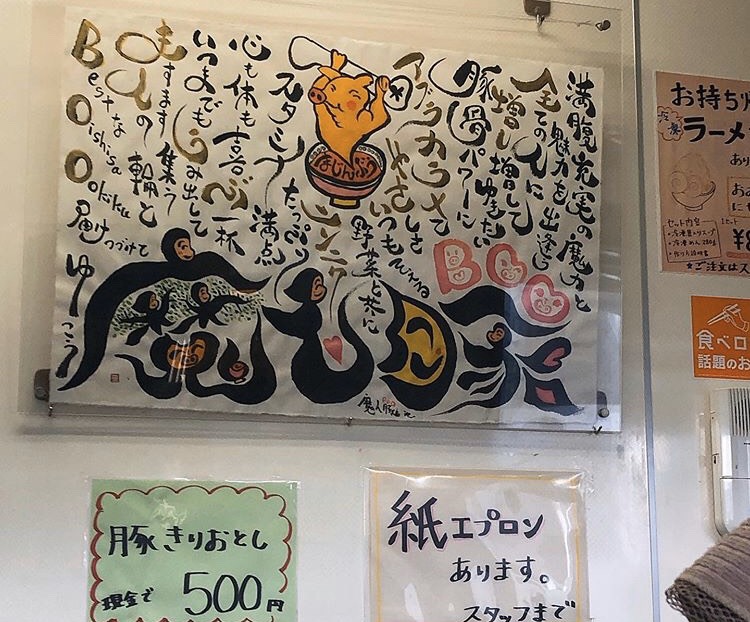 満腹充実の魔力と
魅力を出逢う
全ての人に
増し増して
ゆきたい
豚骨パワーに
アブラのうまみ
やさしさ
いつもでっかる
野菜と共に
ニンニク
たっぷり
スタミナ満点
心も体も喜ぶ一杯
いつまでも生み出して
ますます集う
人の輪と
Best な
Oishisa
Ookiku
届けつづけて
ゆこう
まじんぶう
BOO
魔人豚
豚きりおとし
現金で 500円
紙エプロン
あります。
スタッフまで
お持ち帰
ラーメ
あり
セット内容
¥8
★ご注文はス
食べロ
話題のお